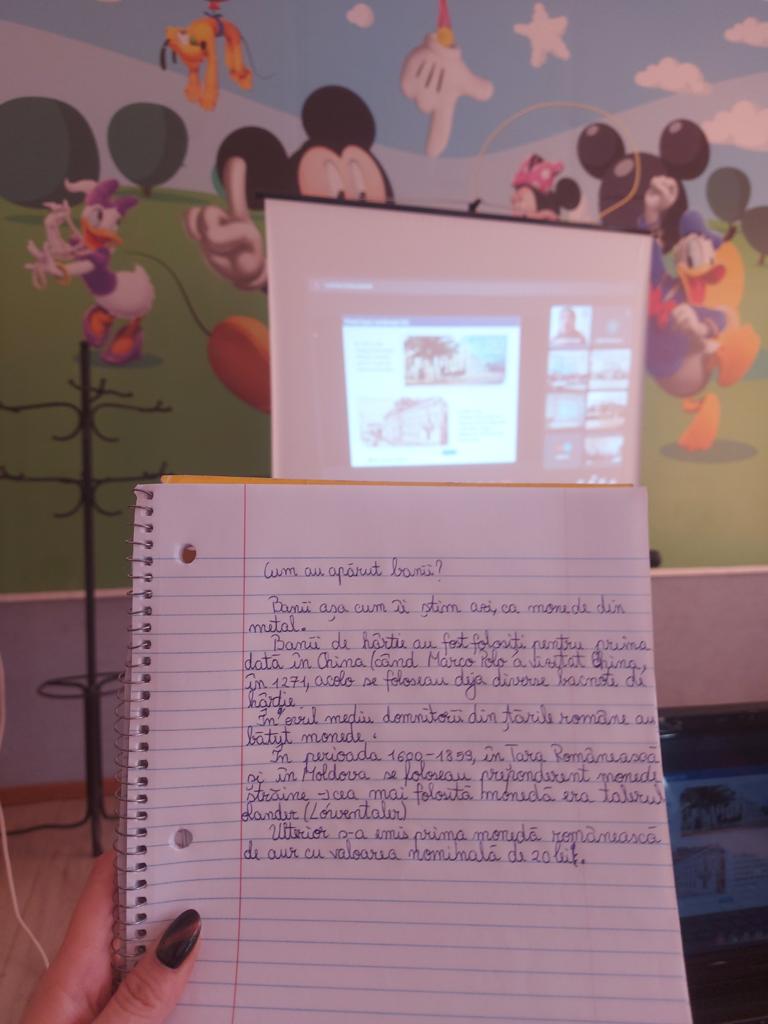 Cum au apărut banii?
Banii așa cum îi știm azi, ca monede din
metal.
Banii de hârtie au fost folosiți pentru prima
dată în China (când Marco Polo a vizitat China,
în 1271, acolo se foloseau deja diverse bacnote de
hârtie.
În evul mediu domnitorii din țările române au
bătut monede.
În perioada 1600-1859, în Țara Românească
și în Moldova se foloseau preponderent monede
străine → cea mai folosită monedă era talerul
olander (Löwentaler)
Ulterior s-a emis prima monedă românească
de aur cu valoarea nominală de 20 lei.